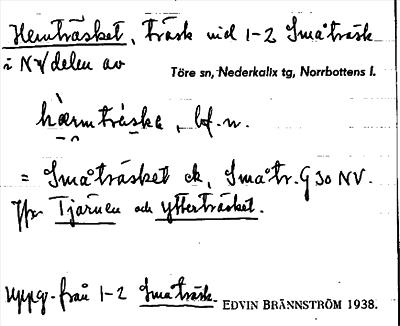 Hemträsket, träsk vid 1-2 Småträsk
i NV delen av
Töre sn, Nederkalix tg, Norrbottens l.
hærmtráska, bf. n.
= Småträsket ek, Småtr. G 30 NV.
Jfr Tjärnen och Ytterträsket.
uppg. från 1-2 Småträsk. EDVIN BRÄNNSTRÖM 1938.